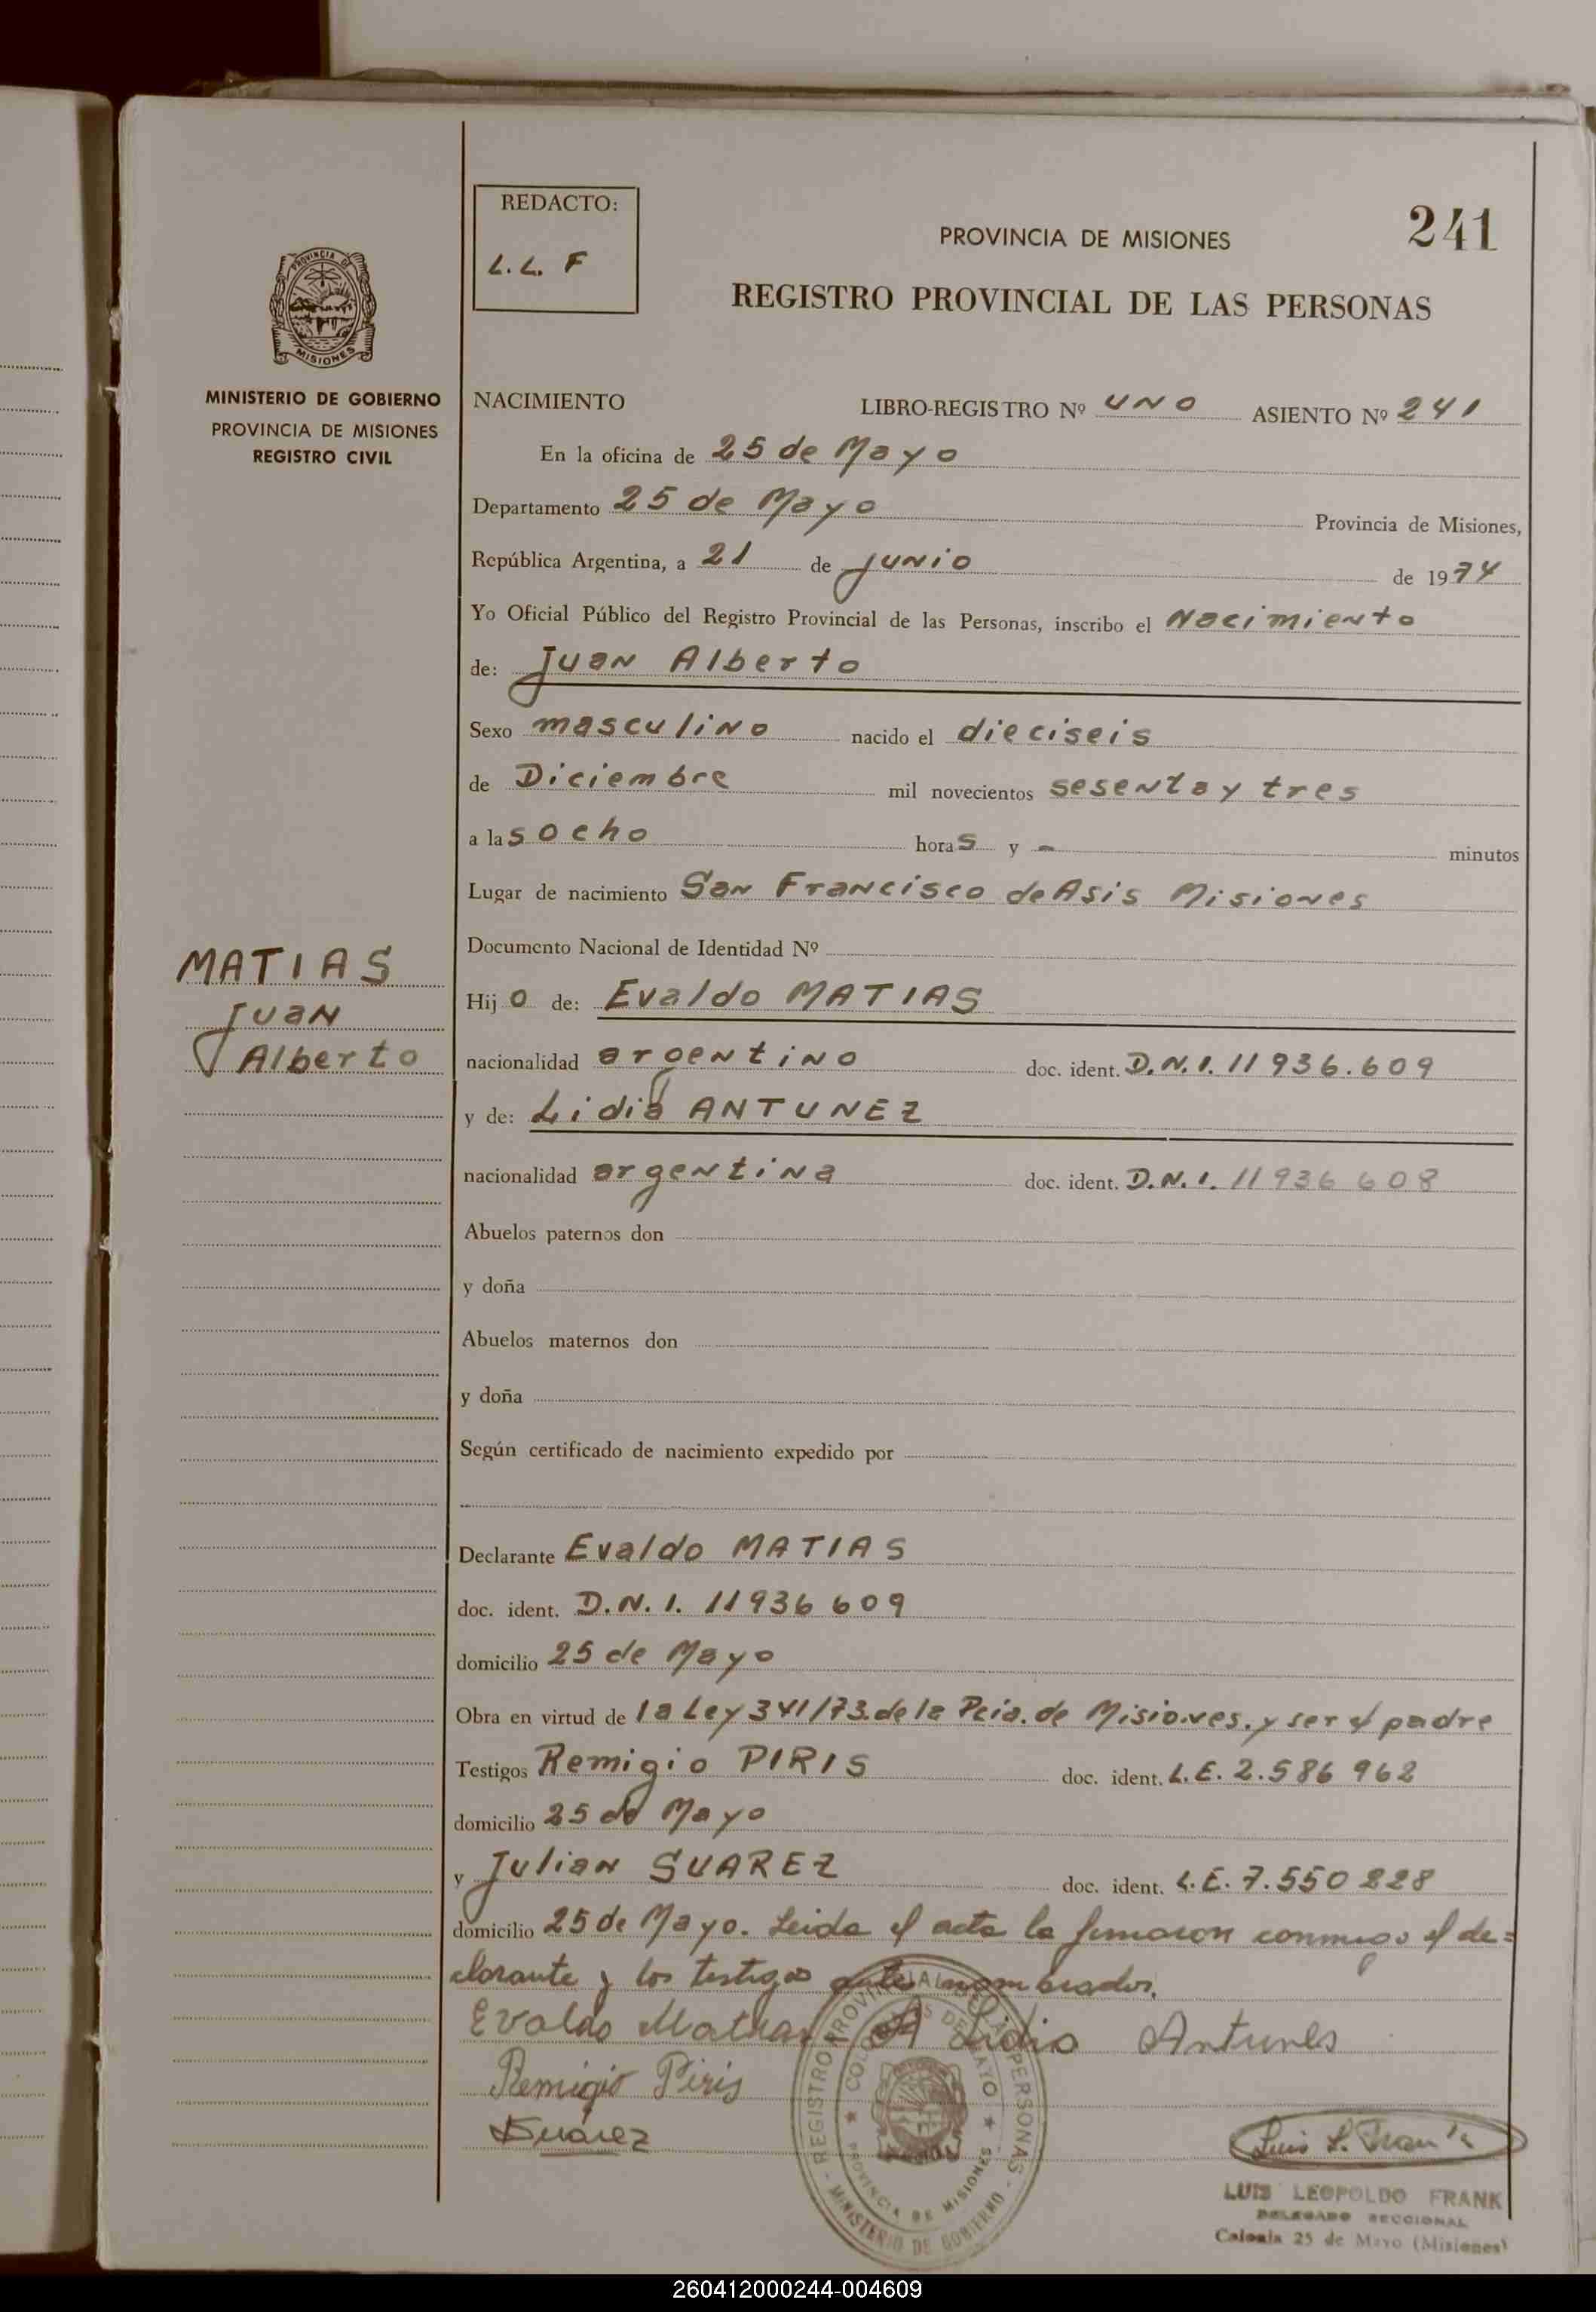 REDACTO:
L.L. F
PROVINCIA DE MISIONES
241
REGISTRO PROVINCIAL DE LAS PERSONAS
PROVINCIA DE
MISIONES
MINISTERIO DE GOBIERNO
PROVINCIA DE MISIONES
REGISTRO CIVIL
NACIMIENTO LIBRO-REGISTRO Nº UNO ASIENTO Nº 241
En la oficina de 25 de Mayo
Departamento 25 de Mayo Provincia de Misiones,
República Argentina, a 21 de junio de 1974
Yo Oficial Público del Registro Provincial de las Personas, inscribo el Nacimiento
de: Juan Alberto
Sexo masculino nacido el dieciseis
de Diciembre mil novecientos sesenta y tres
a las ocho horas y - minutos
Lugar de nacimiento San Francisco de Asis Misiones
Documento Nacional de Identidad Nº
MATIAS
Juan
Alberto
Hijo de: Evaldo MATIAS
nacionalidad argentino doc. ident. D.N.I. 11936.609
y de: Lidia ANTUNEZ
nacionalidad argentina doc. ident. D.N.I. 11936 608
Abuelos paternos don
y doña
Abuelos maternos don
y doña
Según certificado de nacimiento expedido por
Declarante Evaldo MATIAS
doc. ident. D.N.I. 11936 609
domicilio 25 de Mayo
Obra en virtud de la Ley 341/73.de la Pcia. de Misiones. y ser el padre
Testigos Remigio PIRIS doc. ident. L.E. 2.586 962
domicilio 25 de Mayo
y Julian SUAREZ doc. ident. L.E. 7.550 828
domicilio 25 de Mayo. Leida el acta la firmaron conmigo el de=
clarante y los testigos antes nombrados.
Evaldo Matias Lidia Antunes
Remigio Piris
Suárez
REGISTRO PROVINCIAL DE LAS PERSONAS
MINISTERIO DE GOBIERNO
PROVINCIA DE MISIONES
Luis L. Frank
LUIS LEOPOLDO FRANK
DELEGADO SECCIONAL
Colonia 25 de Mayo (Misiones)
260412000244-004609